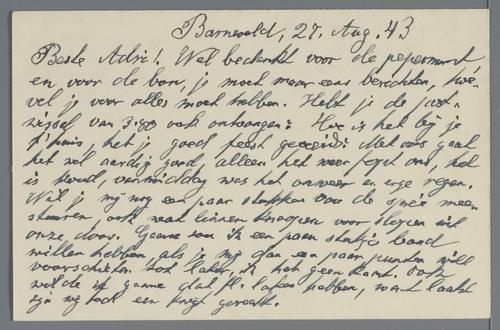 Barneveld, 27. Aug. 43
Beste Adri! Wel bedankt voor de pepermunt
en voor de bon, je moet maar eens berichten, hoe-
veel je voor alles moet hebben. Hebt je de post-
wissel van ook ontvangen? Hoe is het bij je
thuis, heb je goed feest gevierd? Met ons gaat
het wel aardig goed, alleen het weer fopt ons, het
is koud, vanmiddag was het onweer en erge regen.
Wil je mij nog een paar van de meer
sturen, ook wat linnen knoopen voor sloopen uit
onze doos. Gaarne zou ik een paar stukjes band
willen hebben, als je mij dan een paar punten wilt
voorschieten tot later, ik heb geen kaart. Ook
wilde ik gaarne dat hebben, want laatst
zijn wij